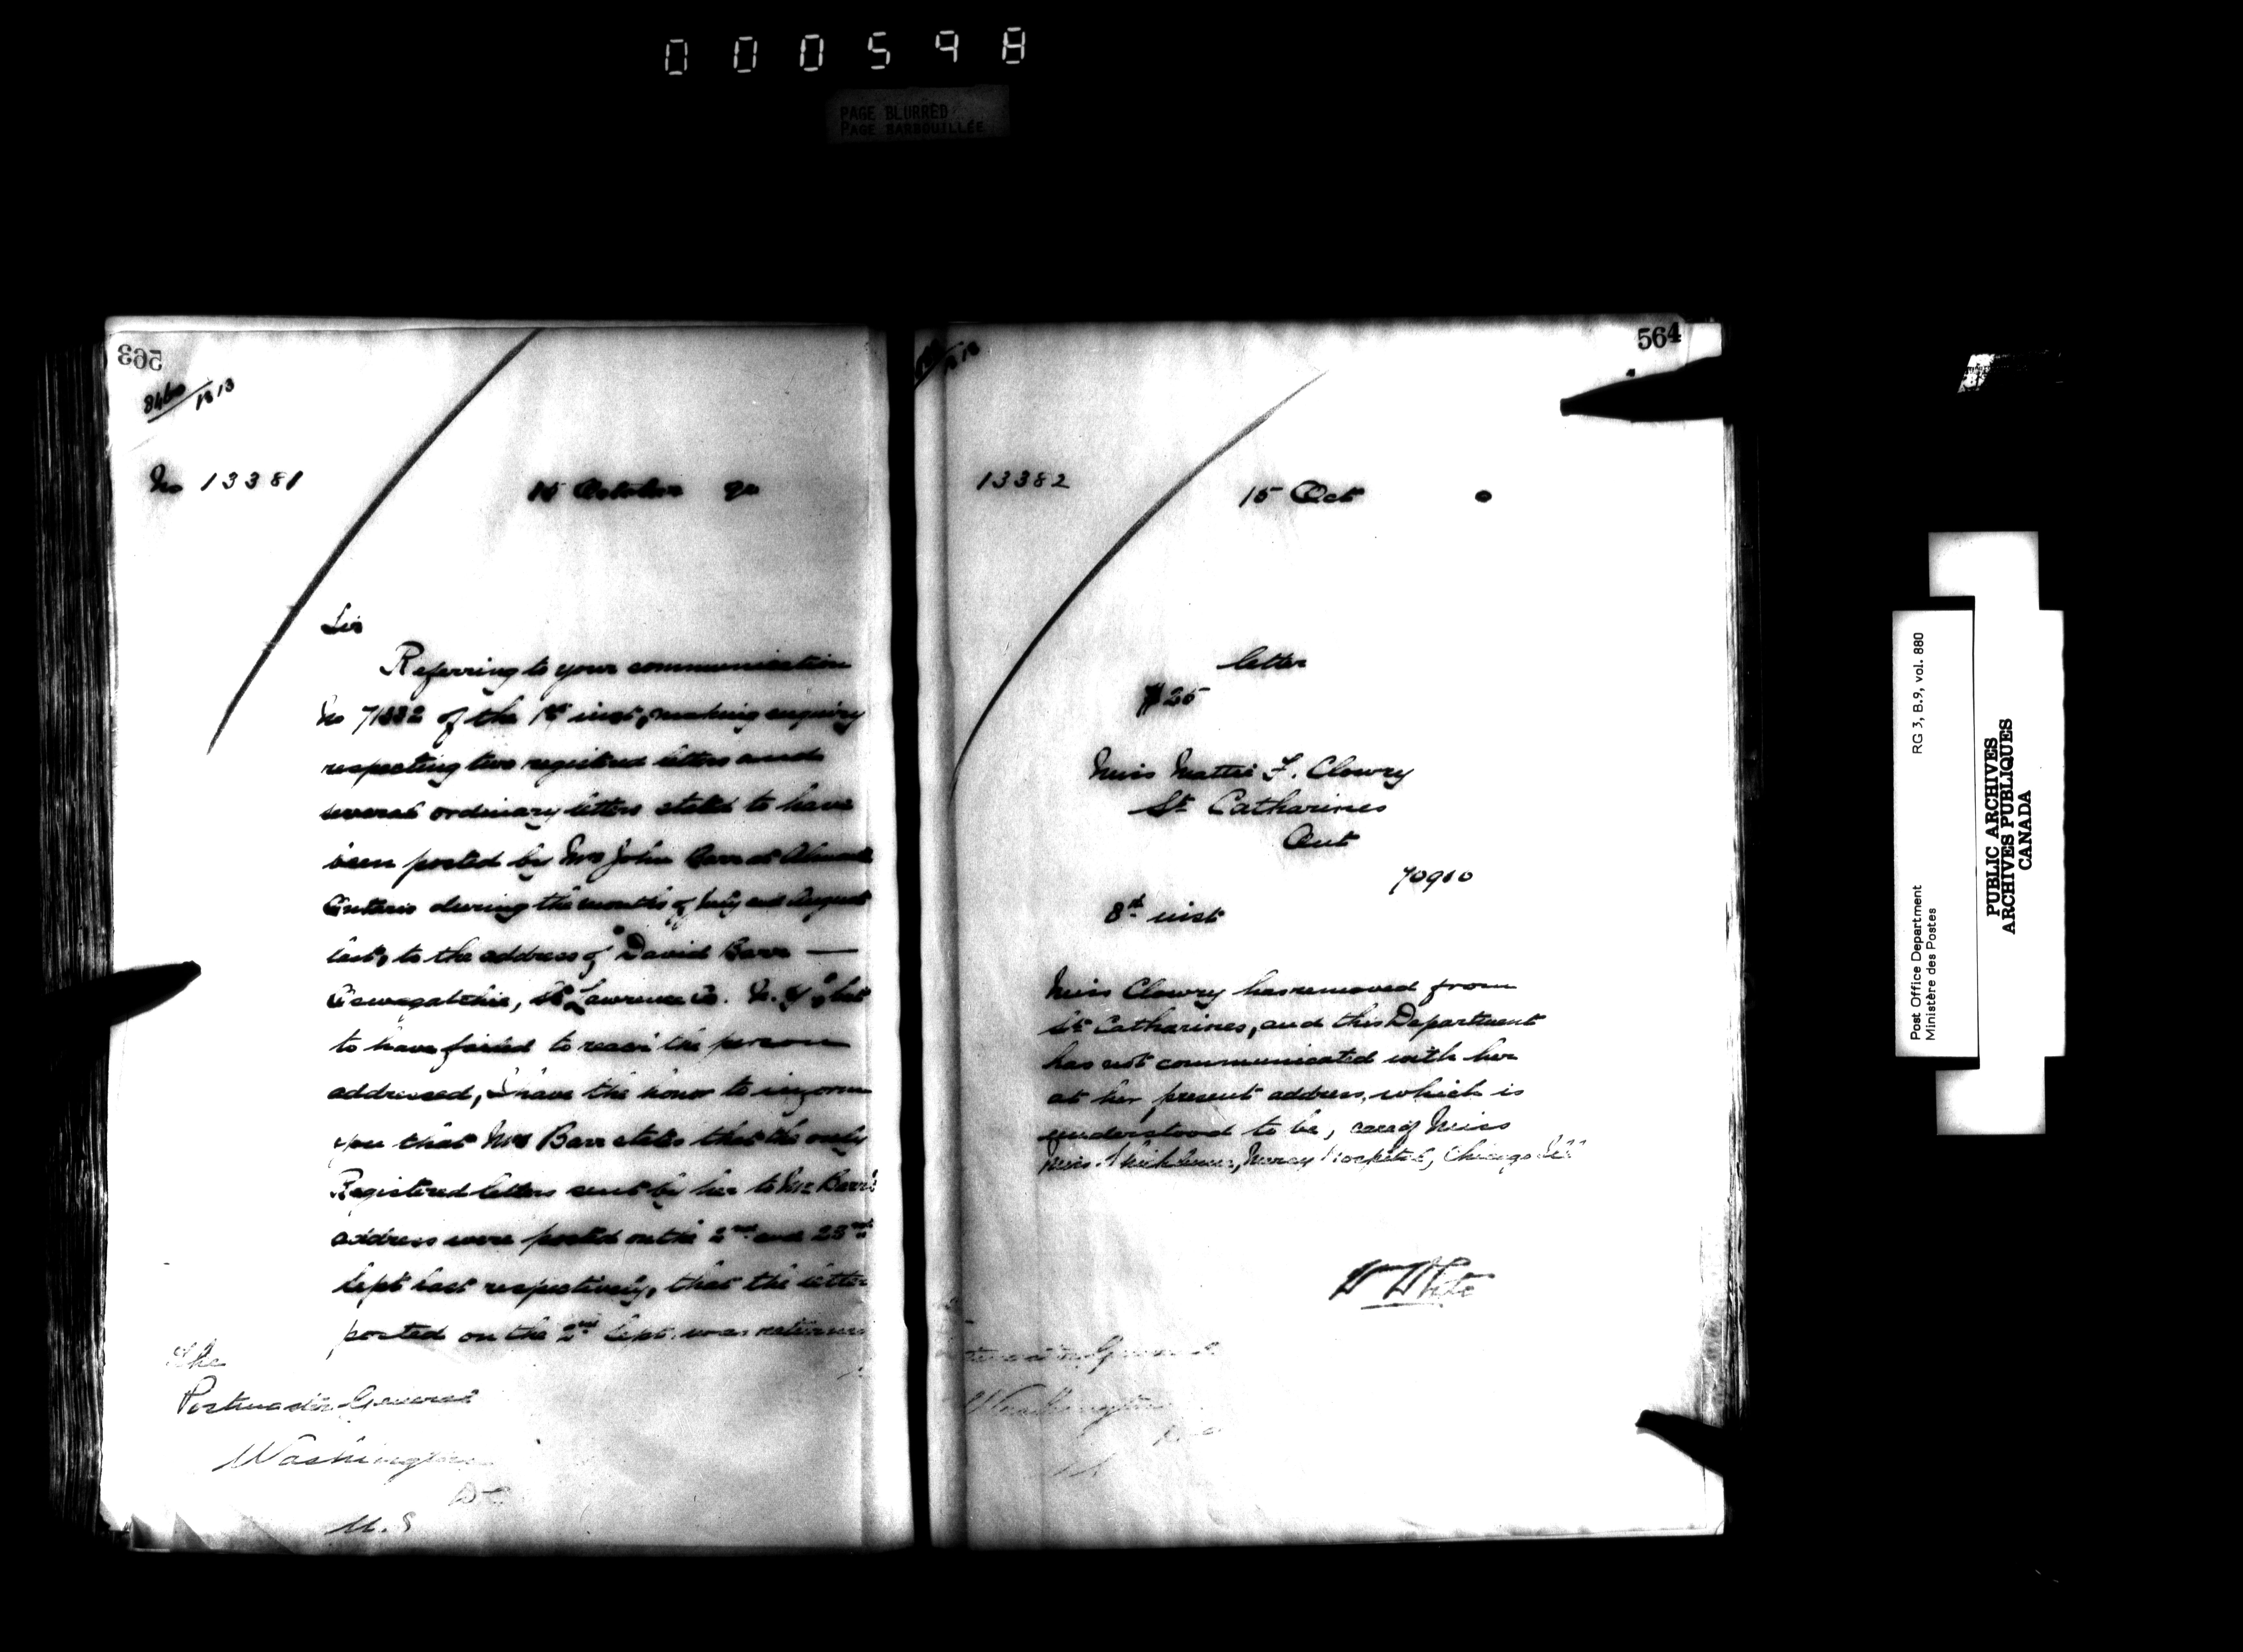 000598
PAGE BLURRED
PAGE BARBOUILLÉE
563
No 13381
15 October 90
Sir
Referring to your communication
No 71882 of the 1st inst, making enquiry
respecting two registered letters and
several ordinary letters stated to have
been posted by Mrs John Barr at Almonte
Ontario during the months of July and August
last, to the address of "David Barr —
Oswegatchie, St Lawrence Co. N. Y", but
to have failed to reach the person
addressed, I have the honor to inform
you that Mrs Barr states that the only
Registered letters sent by her to Mr Barr's
address were posted on the 2nd and 23rd
Sept last respectively, that the letter
posted on the 2nd Sept. was returned
The
Postmaster General
Washington
D C
U. S
564
13382
15 Oct
letter
$25
Miss Mattie F. Clowry
St Catharines
Ont
70910
8th inst
Miss Clowry has removed from
St Catharines, and this Department
has not communicated with her
at her present address, which is
understood to be, care of Miss
Mercy Hospital, Chicago Ill
Wm White
Postmaster General
Washington
Post Office Department
Ministère des Postes
RG 3, B.9, vol. 880
PUBLIC ARCHIVES
ARCHIVES PUBLIQUES
CANADA